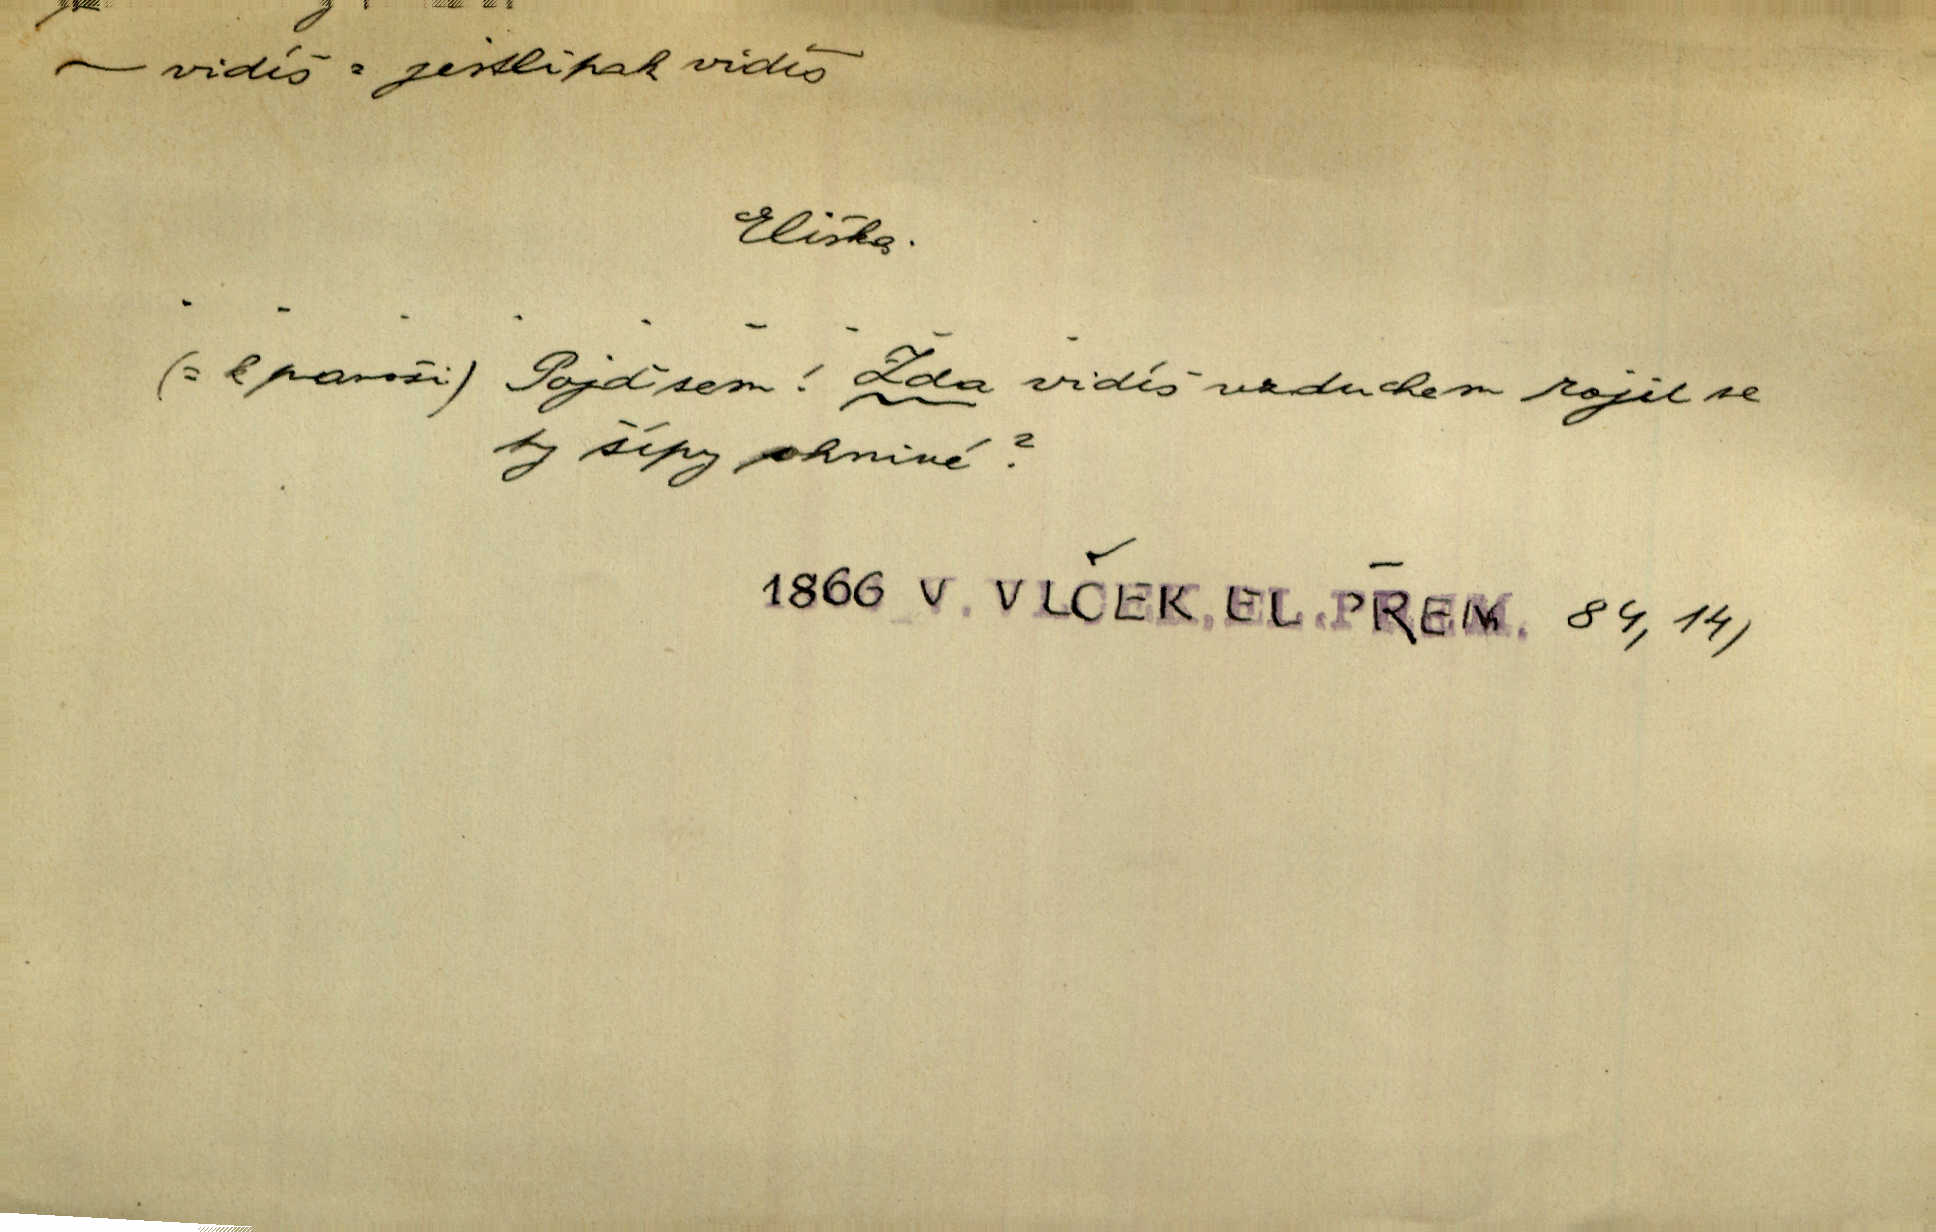 ~ vidíš = jestlipak vidíš
Eliška.
(= k panoši) Pojď sem! Žda vidíš vzduchem rojit se
ty šípy ohnivé?
1866 V. VLČEK, EL. PŘEM. 84, 14)